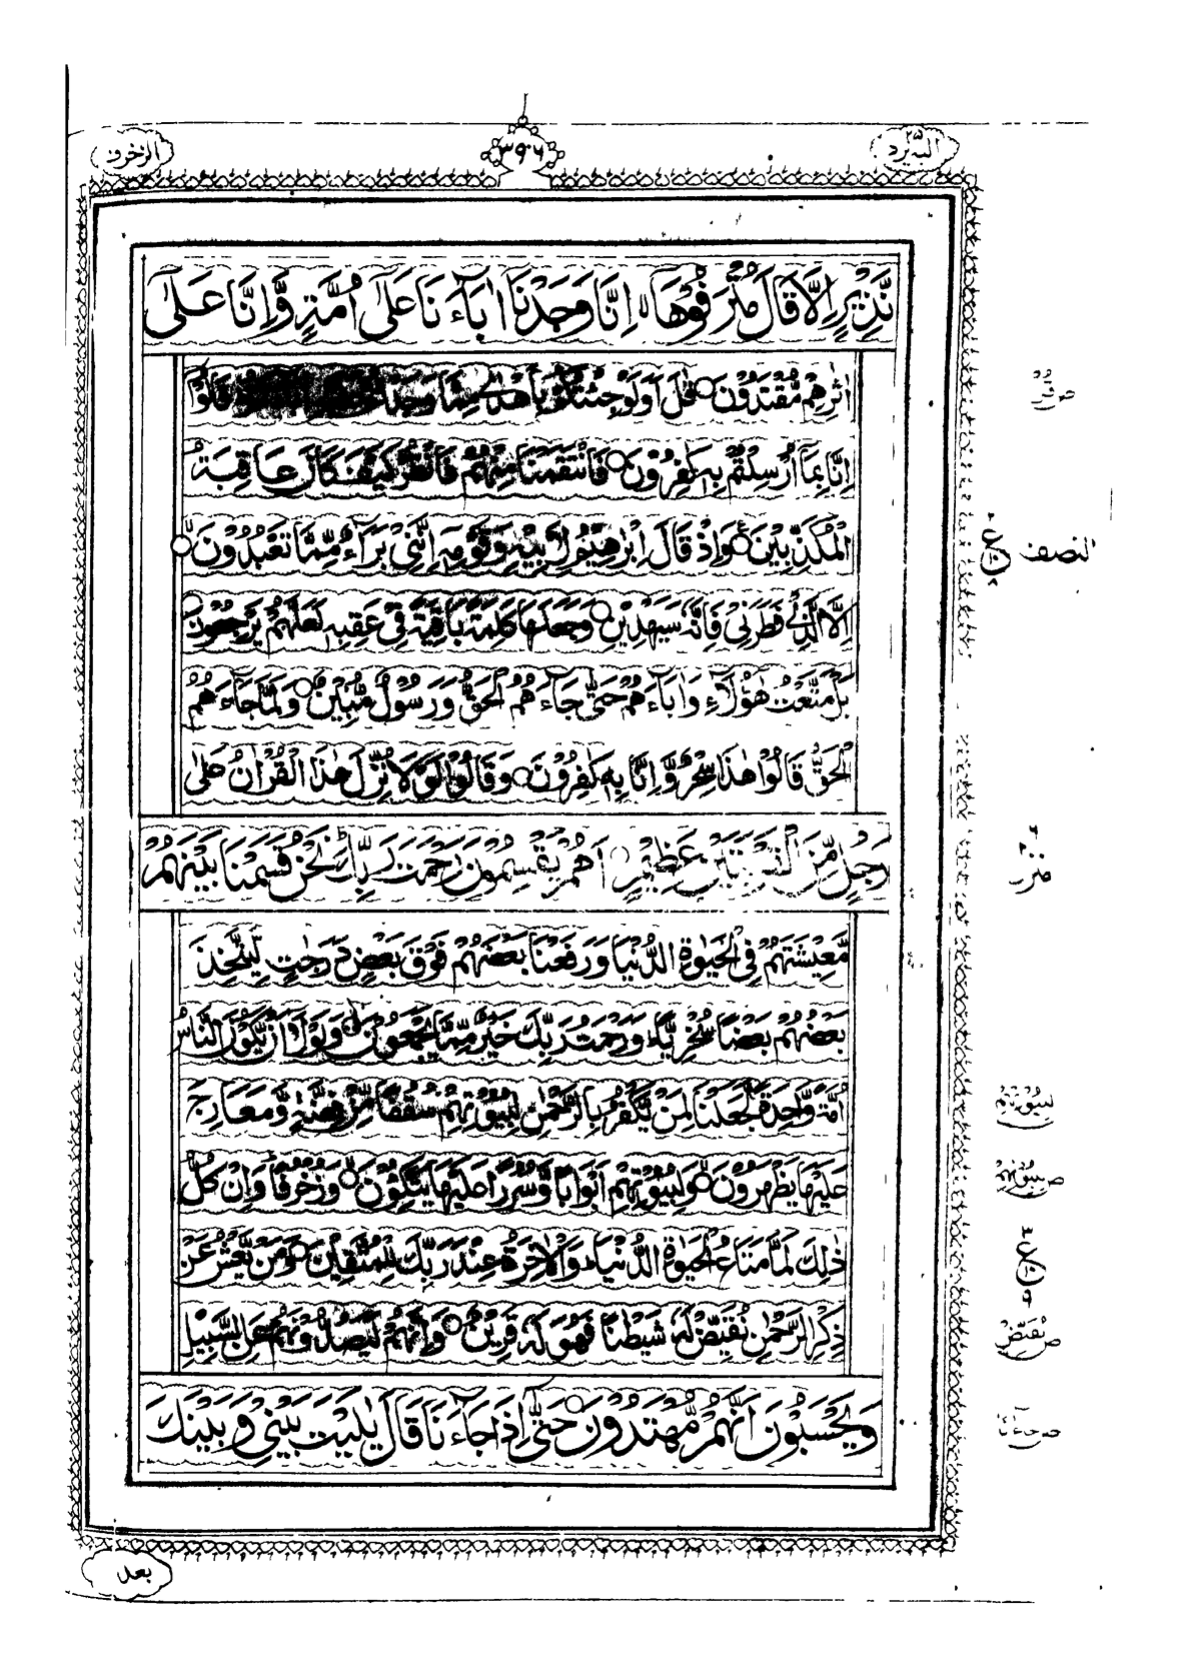 الیه یرد ۲۵
۳۹۶
الزخرف
نَّذِيْرٍ اِلَّا قَالَ مُتْرَفُوْهَاۤ اِنَّا وَجَدْنَاۤ اٰبَآءَنَا عَلٰۤى اُمَّةٍ وَّاِنَّا عَلٰۤى
اٰثٰرِهِمْ مُّقْتَدُوْنَ قٰلَ اَوَلَوْ جِئْتُكُمْ بِاَهْدٰى مِمَّا وَجَدْتُّمْ قَالُوْۤا
اِنَّا بِمَاۤ اُرْسِلْتُمْ بِهٖ كٰفِرُوْنَ فَانْتَقَمْنَا مِنْهُمْ فَانْظُرْ كَيْفَ كَانَ عَاقِبَةُ
الْمُكَذِّبِيْنَ وَاِذْ قَالَ اِبْرٰهِيْمُ لِاَبِيْهِ وَقَوْمِهٖۤ اِنَّنِيْ بَرَآءٌ مِّمَّا تَعْبُدُوْنَ
اِلَّا الَّذِيْ فَطَرَنِيْ فَاِنَّهٗ سَيَهْدِيْنِ وَجَعَلَهَا كَلِمَةًۢ بَاقِيَةً فِيْ عَقِبِهٖ لَعَلَّهُمْ يَرْجِعُوْنَ
بَلْ مَتَّعْتُ هٰۤؤُلَآءِ وَاٰبَآءَهُمْ حَتّٰى جَآءَهُمُ الْحَقُّ وَرَسُوْلٌ مُّبِيْنٌ وَلَمَّا جَآءَهُمُ
الْحَقُّ قَالُوْا هٰذَا سِحْرٌ وَّاِنَّا بِهٖ كٰفِرُوْنَ وَقَالُوْا لَوْلَا نُزِّلَ هٰذَا الْقُرْاٰنُ عَلٰى
رَجُلٍ مِّنَ الْقَرْيَتَيْنِ عَظِيْمٍ اَهُمْ يَقْسِمُوْنَ رَحْمَتَ رَبِّكَ نَحْنُ قَسَمْنَا بَيْنَهُمْ
مَّعِيْشَتَهُمْ فِي الْحَيٰوةِ الدُّنْيَا وَرَفَعْنَا بَعْضَهُمْ فَوْقَ بَعْضٍ دَرَجٰتٍ لِّيَتَّخِذَ
بَعْضُهُمْ بَعْضًا سُخْرِيًّا وَرَحْمَتُ رَبِّكَ خَيْرٌ مِّمَّا يَجْمَعُوْنَ وَلَوْلَاۤ اَنْ يَّكُوْنَ النَّاسُ
اُمَّةً وَّاحِدَةً لَّجَعَلْنَا لِمَنْ يَّكْفُرُ بِالرَّحْمٰنِ لِبُيُوْتِهِمْ سُقُفًا مِّنْ فِضَّةٍ وَّمَعَارِجَ
عَلَيْهَا يَظْهَرُوْنَ وَلِبُيُوْتِهِمْ اَبْوَابًا وَّسُرُرًا عَلَيْهَا يَتَّكِـُٔوْنَ وَزُخْرُفًا وَاِنْ كُلُّ
ذٰلِكَ لَمَّا مَتَاعُ الْحَيٰوةِ الدُّنْيَا وَالْاٰخِرَةُ عِنْدَ رَبِّكَ لِلْمُتَّقِيْنَ وَمَنْ يَّعْشُ عَنْ
ذِكْرِ الرَّحْمٰنِ نُقَيِّضْ لَهٗ شَيْطٰنًا فَهُوَ لَهٗ قَرِيْنٌ وَاِنَّهُمْ لَيَصُدُّوْنَهُمْ عَنِ السَّبِيْلِ
وَيَحْسَبُوْنَ اَنَّهُمْ مُّهْتَدُوْنَ حَتّٰۤى اِذَا جَآءَنَا قَالَ يٰلَيْتَ بَيْنِيْ وَبَيْنَكَ
النصف
ع
منزل
لبيوتهم
ع
نقيض
جاءنا
بعد